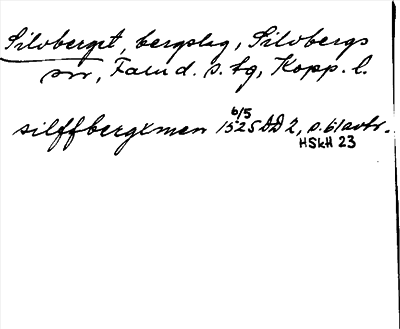 Silvberget, bergslag, Silvbergs
sn, Falu d. s. tg, Kopp. l.
silffbergxmen 6/5 1525 DD 2, s. 61 avtr.
HSkH 23